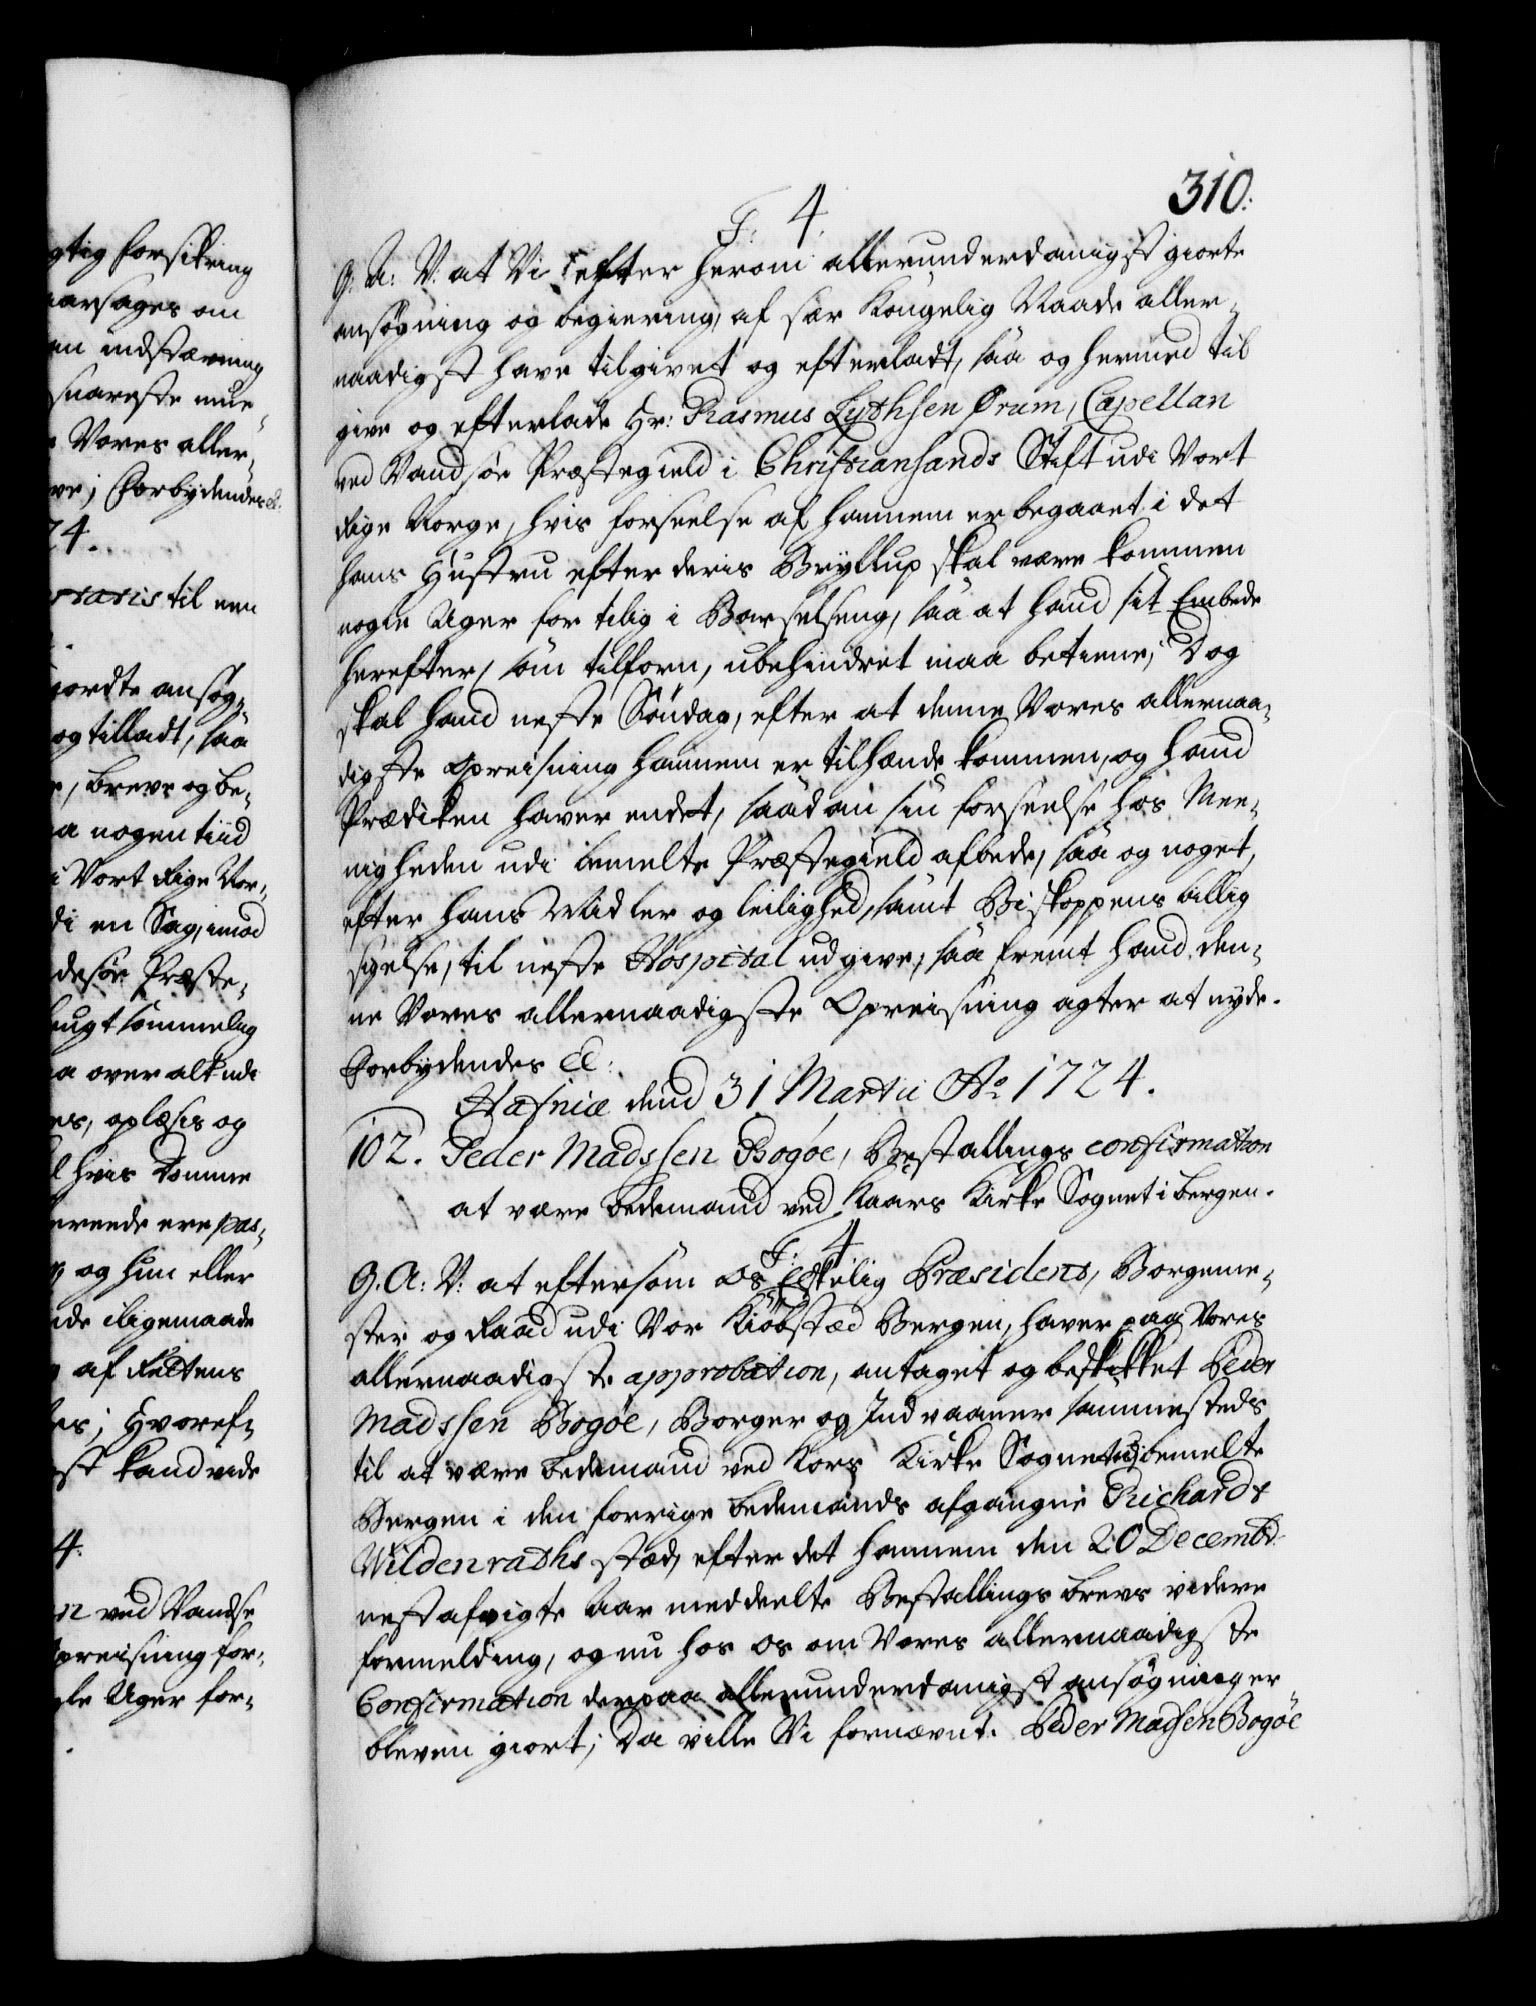 gtig forsikring
aarsages om
en indstævning
snareste mue-
Vores aller-
ve; Forbydendes &c:
24.
til een
giordte ansøg-
og tilladt, saa
e, breve og be-
a nogen tiid
i Vort Rige Nor-
di en Sag, imod
desøe Præste-
sømmelig
a over alt udi
es, oplæsis og
l hvis Domme
ere pas-
og hun eller
nde iligemaade
af Rettens
es; Hvoref-
st kand vide
4.
n ved Vandsø
preisning for-
gle Uger for-
310.
F. 4.
G. A: V: at Vi efter herom allerunderdanigst giorte
ansøgning og begiering, af sær Kongelig Naade aller-
naadigst have tilgivet og efterladt, saa og hermed til
give og efterlade Hr: Rasmus Lydhsen Ørum, Capellan
ved Vandsøe Præstegield i Christiansands Stift udi Vort
Rige Norge, hvis forseelse af hannem er begaaet i det
hans Hustru efter deris Bryllup skal være kommen
nogle Uger for tilig i Barselseng, saa at hand sit Embede
herefter, som tilforn, ubehindret maa betiene; Dog
skal hand neste Søndag, efter at denne Vores allernaa-
digste Opreisning hannem er tilhænde kommen, og hand
Prædiken haver endet, saadan sin forseelse hos Mee-
nigheden udi bemelte Præstegield afbede, saa og noget,
efter hans Midler og leilighed, samt Biskoppens billig
sigelse, til neste Hospital udgive, saa fremt hand den-
ne Vores allernaadigste Opreisning agter at nyde.
Forbydendes &c:
Hafniæ dend 31 Martii Ao 1724.
102. Peder Madssen Bogøe, Bestallings confirmation
at være bedemand ved Kaars Kirke Sognet i bergen.
F: 4.
G. A: V: at eftersom Os Elskelig Præsident, Borgeme-
ster og Raad udi Vor Kiøbstæd Bergen, haver paa Vores
allernaadigste approbation, antaget og beskikket Peder
Madssen Bogøe, Borger og Indvaaner sammesteds
til at være bedemand ved Kors Kirke Sognet udi bemelte
Bergen i den forrige bedemands afgangne Richardt
Wildenradhs stæd, efter det hannem den 20 Decembr
nestafvigte Aar meddeelte Bestallings brevs videre
formelding, og nu hos os om Vores allernaadigste
Confirmation derpaa allerunderdanigst ansøgning er
bleven giort; Da ville Vi fornævnte Peder Madsen Bogøe